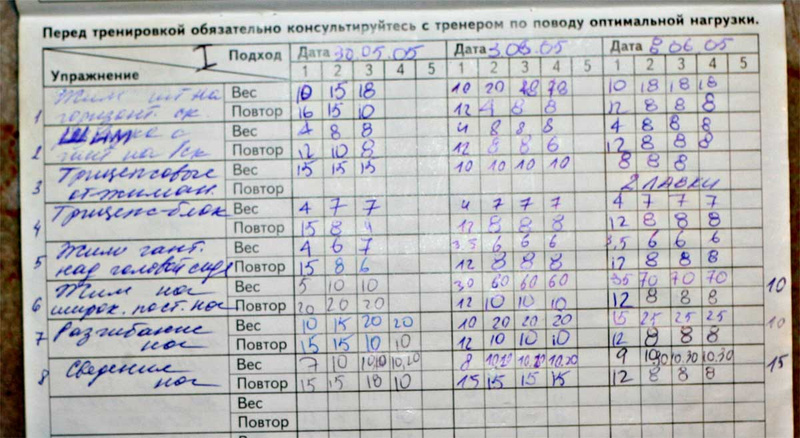 Перед тренировкой обязательно консультируйтесь с тренером по поводу оптимальной нагрузки.
I Подход Дата 30.05.05 Дата 3.06.05 Дата 8.06.05
Упражнение 1 2 3 4 5 1 2 3 4 5 1 2 3 4 5
1 Жим шт на Вес 10 15 18 10 20 18 18 10 18 18 18
горизонт ск. Повтор 16 15 10 12 4 8 8 12 8 8 8
Вес 4 8 8 4 8 8 8 4 8 8 8
2 гант на Повтор 12 10 8 12 8 8 6 12 8 8 8
Трицепсовые Вес 15 15 15 10 10 10 10 8 8 8
3 отжиман. Повтор 2 ЛАВКИ
Трицепс-блок Вес 4 7 7 4 7 7 7 4 7 7 7
4 Повтор 15 8 12 8 8 8 12 8 8 8
Жим гант. Вес 4 6 7 3,5 6 6 6 3,5 6 6 6
5 над головой сидя Повтор 15 8 6 12 8 8 8 12 8 8 8
Жим ног Вес 5 10 10 30 60 60 60 35 70 70 70 10
6 широк. пост. ног Повтор 20 20 20 12 10 10 10 12 8 8 8
7 Разгибание Вес 10 15 20 20 10 20 20 20 15 25 25 25 10
ног Повтор 15 15 10 10 12 10 10 10 12 8 8 8
Сведение Вес 7 10 10,10 10,20 8 10.20 10.20 10.20 9 10.30 10.30 15
8 ног Повтор 15 15 18 10 15 15 15 15 12 8 8 8
Вес
Повтор